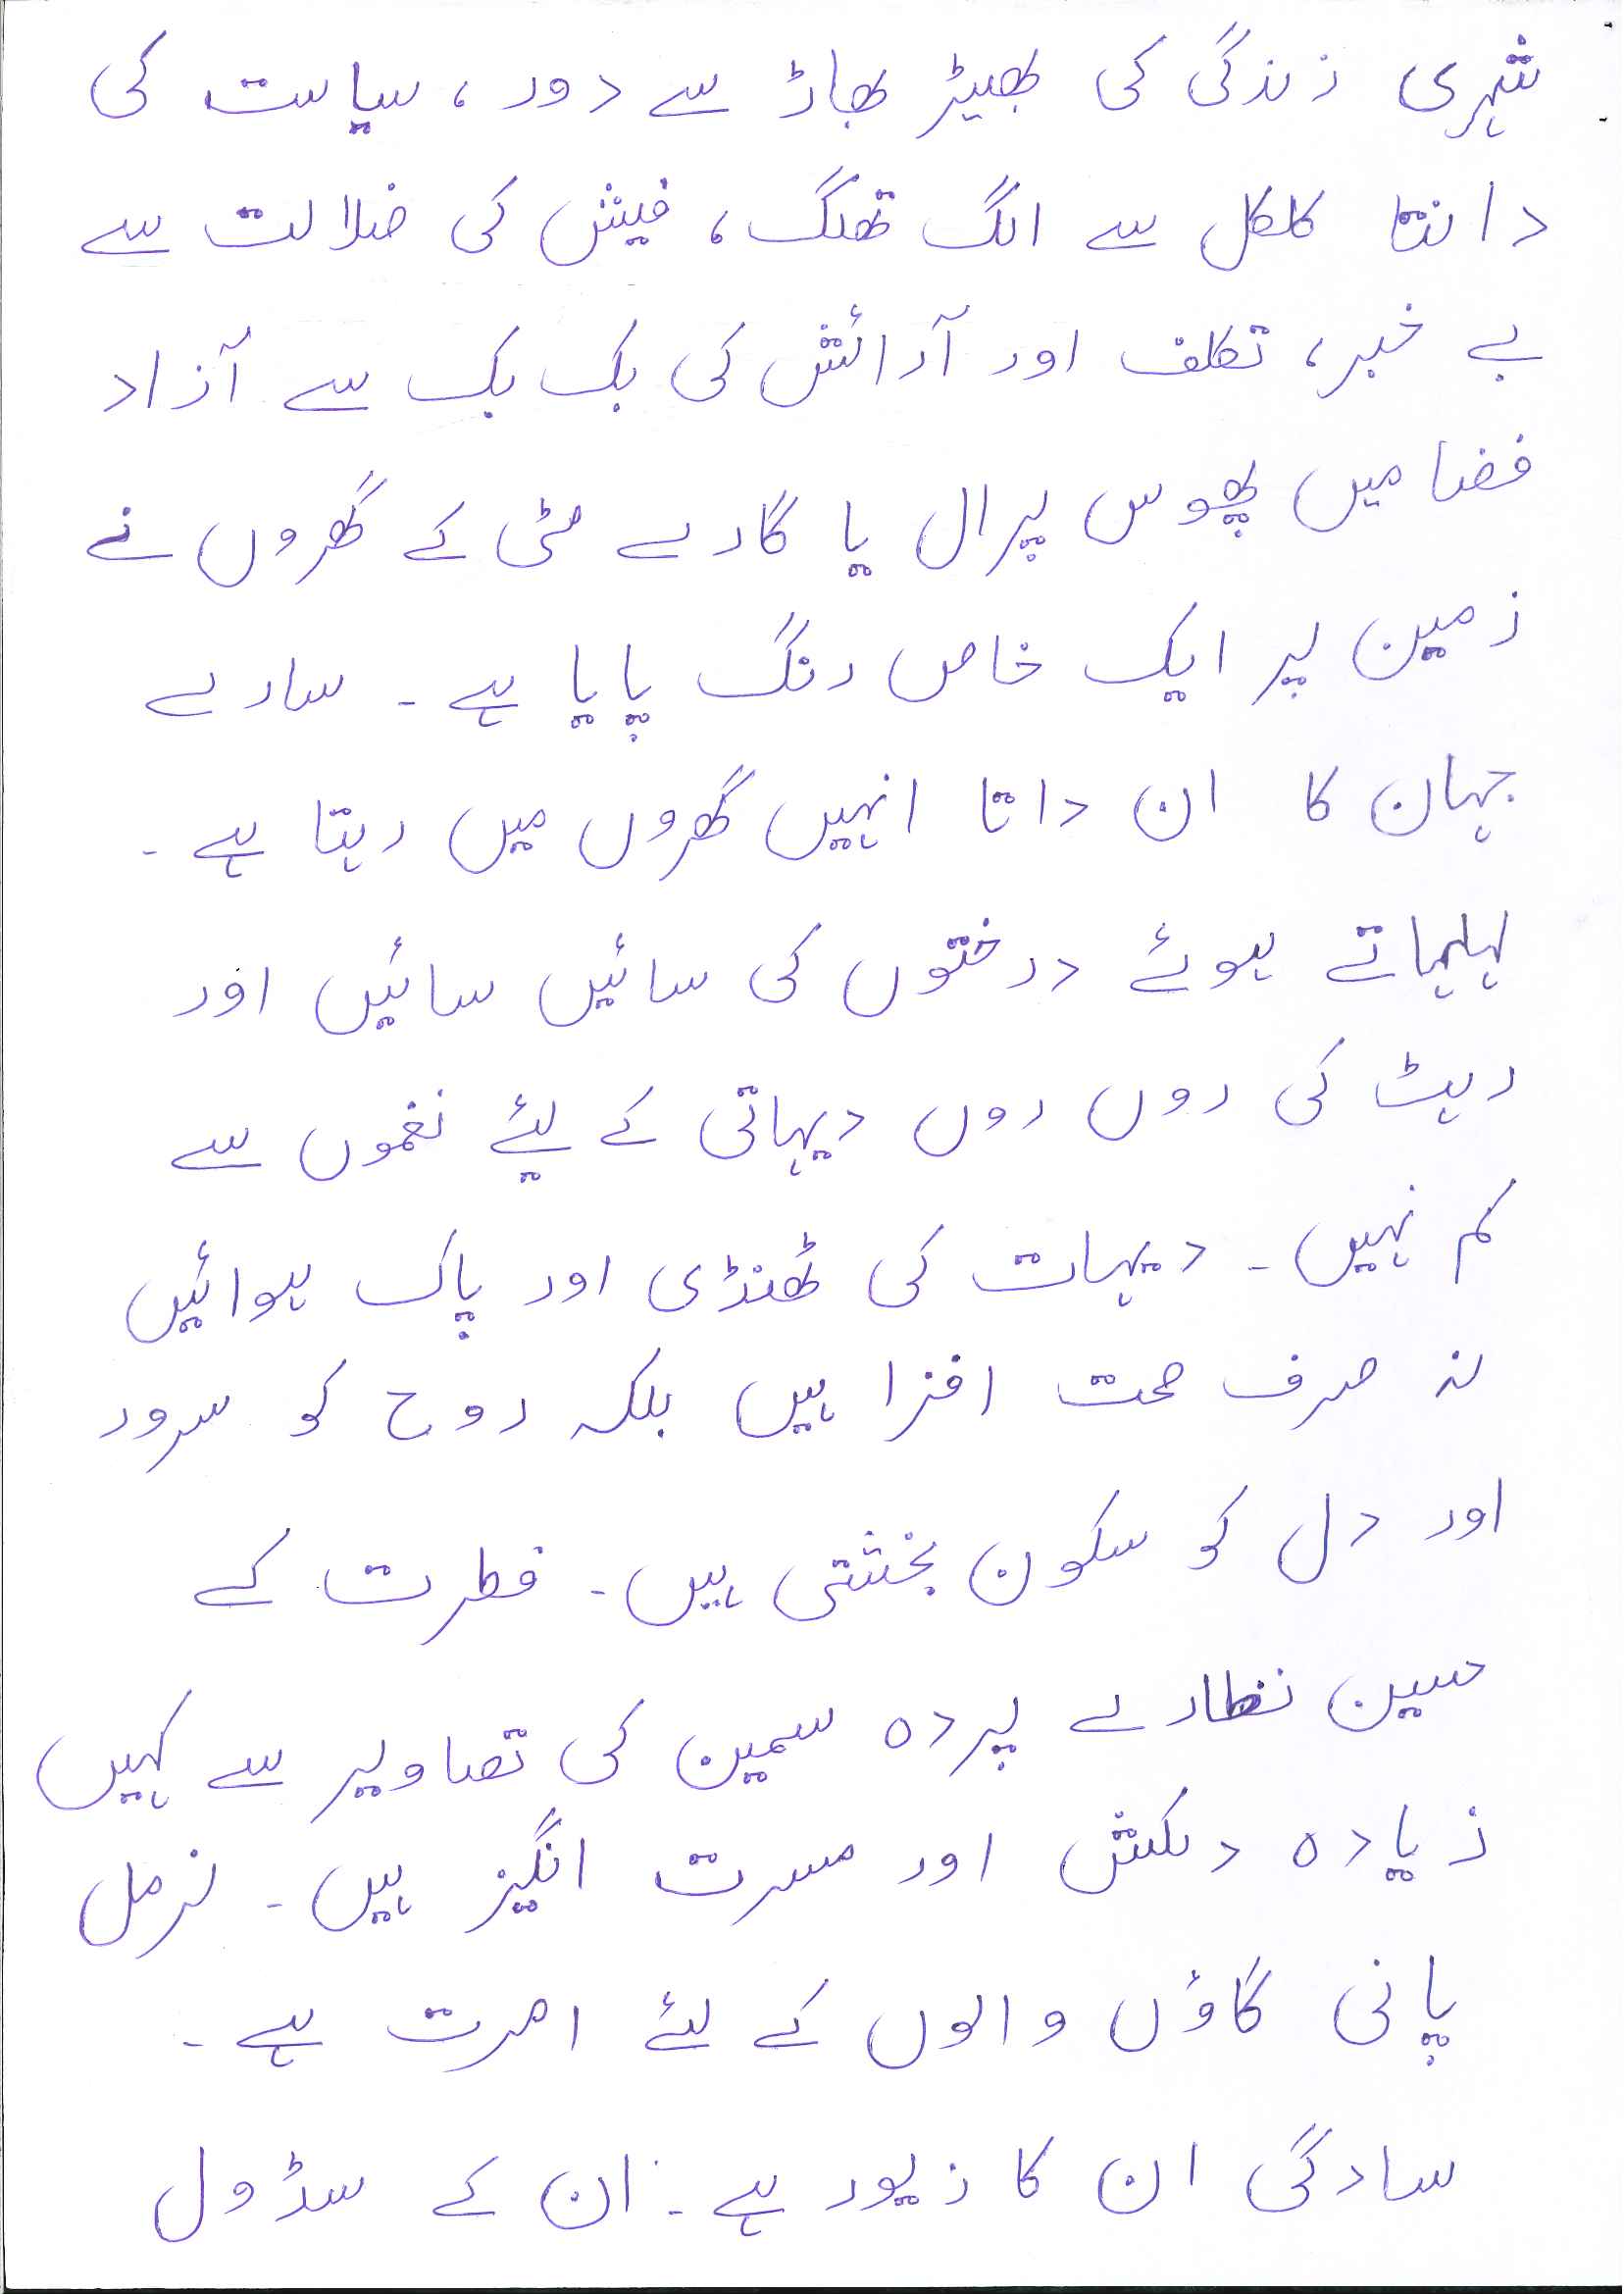 شہری زندگی کی بھیڑ بھاڑ سے دور، سیاست کی
دانتا کلکل سے الگ تھلگ، فیشن کی ضلالت سے
بے خبر، تکلف اور آرائش کی بک بک سے آزاد
فضا میں پھوس پرال یا گارے مٹی کے گھروں نے
زمین پر ایک خاص رنگ پایا ہے۔ سارے
جہان کا ان داتا انہیں گھروں میں رہتا ہے۔
لہلہاتے ہوئے درختوں کی سائیں سائیں اور
رہٹ کی روں روں دیہاتی کے لیٔے نغموں سے
کم نہیں۔ دیہات کی ٹھنڈی اور پاک ہوائیں
نہ صرف صحت افزا ہیں بلکہ روح کو سرور
اور دل کو سکون بخشتی ہیں۔ فطرت کے
حسین نظارے پردہ سمین کی تصاویر سے کہیں
زیادہ دلکش اور مسرت انگیز ہیں۔ نرمل
پانی گاؤں والوں کے لئے امرت ہے۔
سادگی ان کا زیور ہے۔ ان کے سڈول